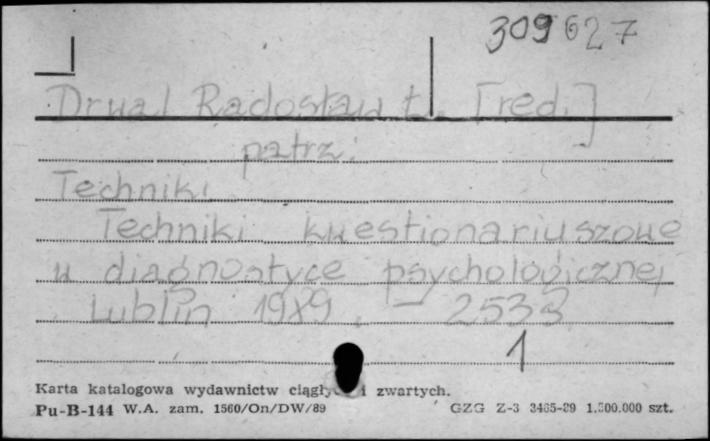 309627
Drwal Radosław Ł. [red.]
patrz:
Techniki
Techniki kwestionariuszowe
w diagnostyce psychologicznej
Lublin 1989. – 253 s
1
Karta katalogowa wydawnictw ciągłych i zwartych.
Pu-B-144 W.A. zam. 1560/On/DW/89 GZG Z-3 3465-89 1.500.000 szt.